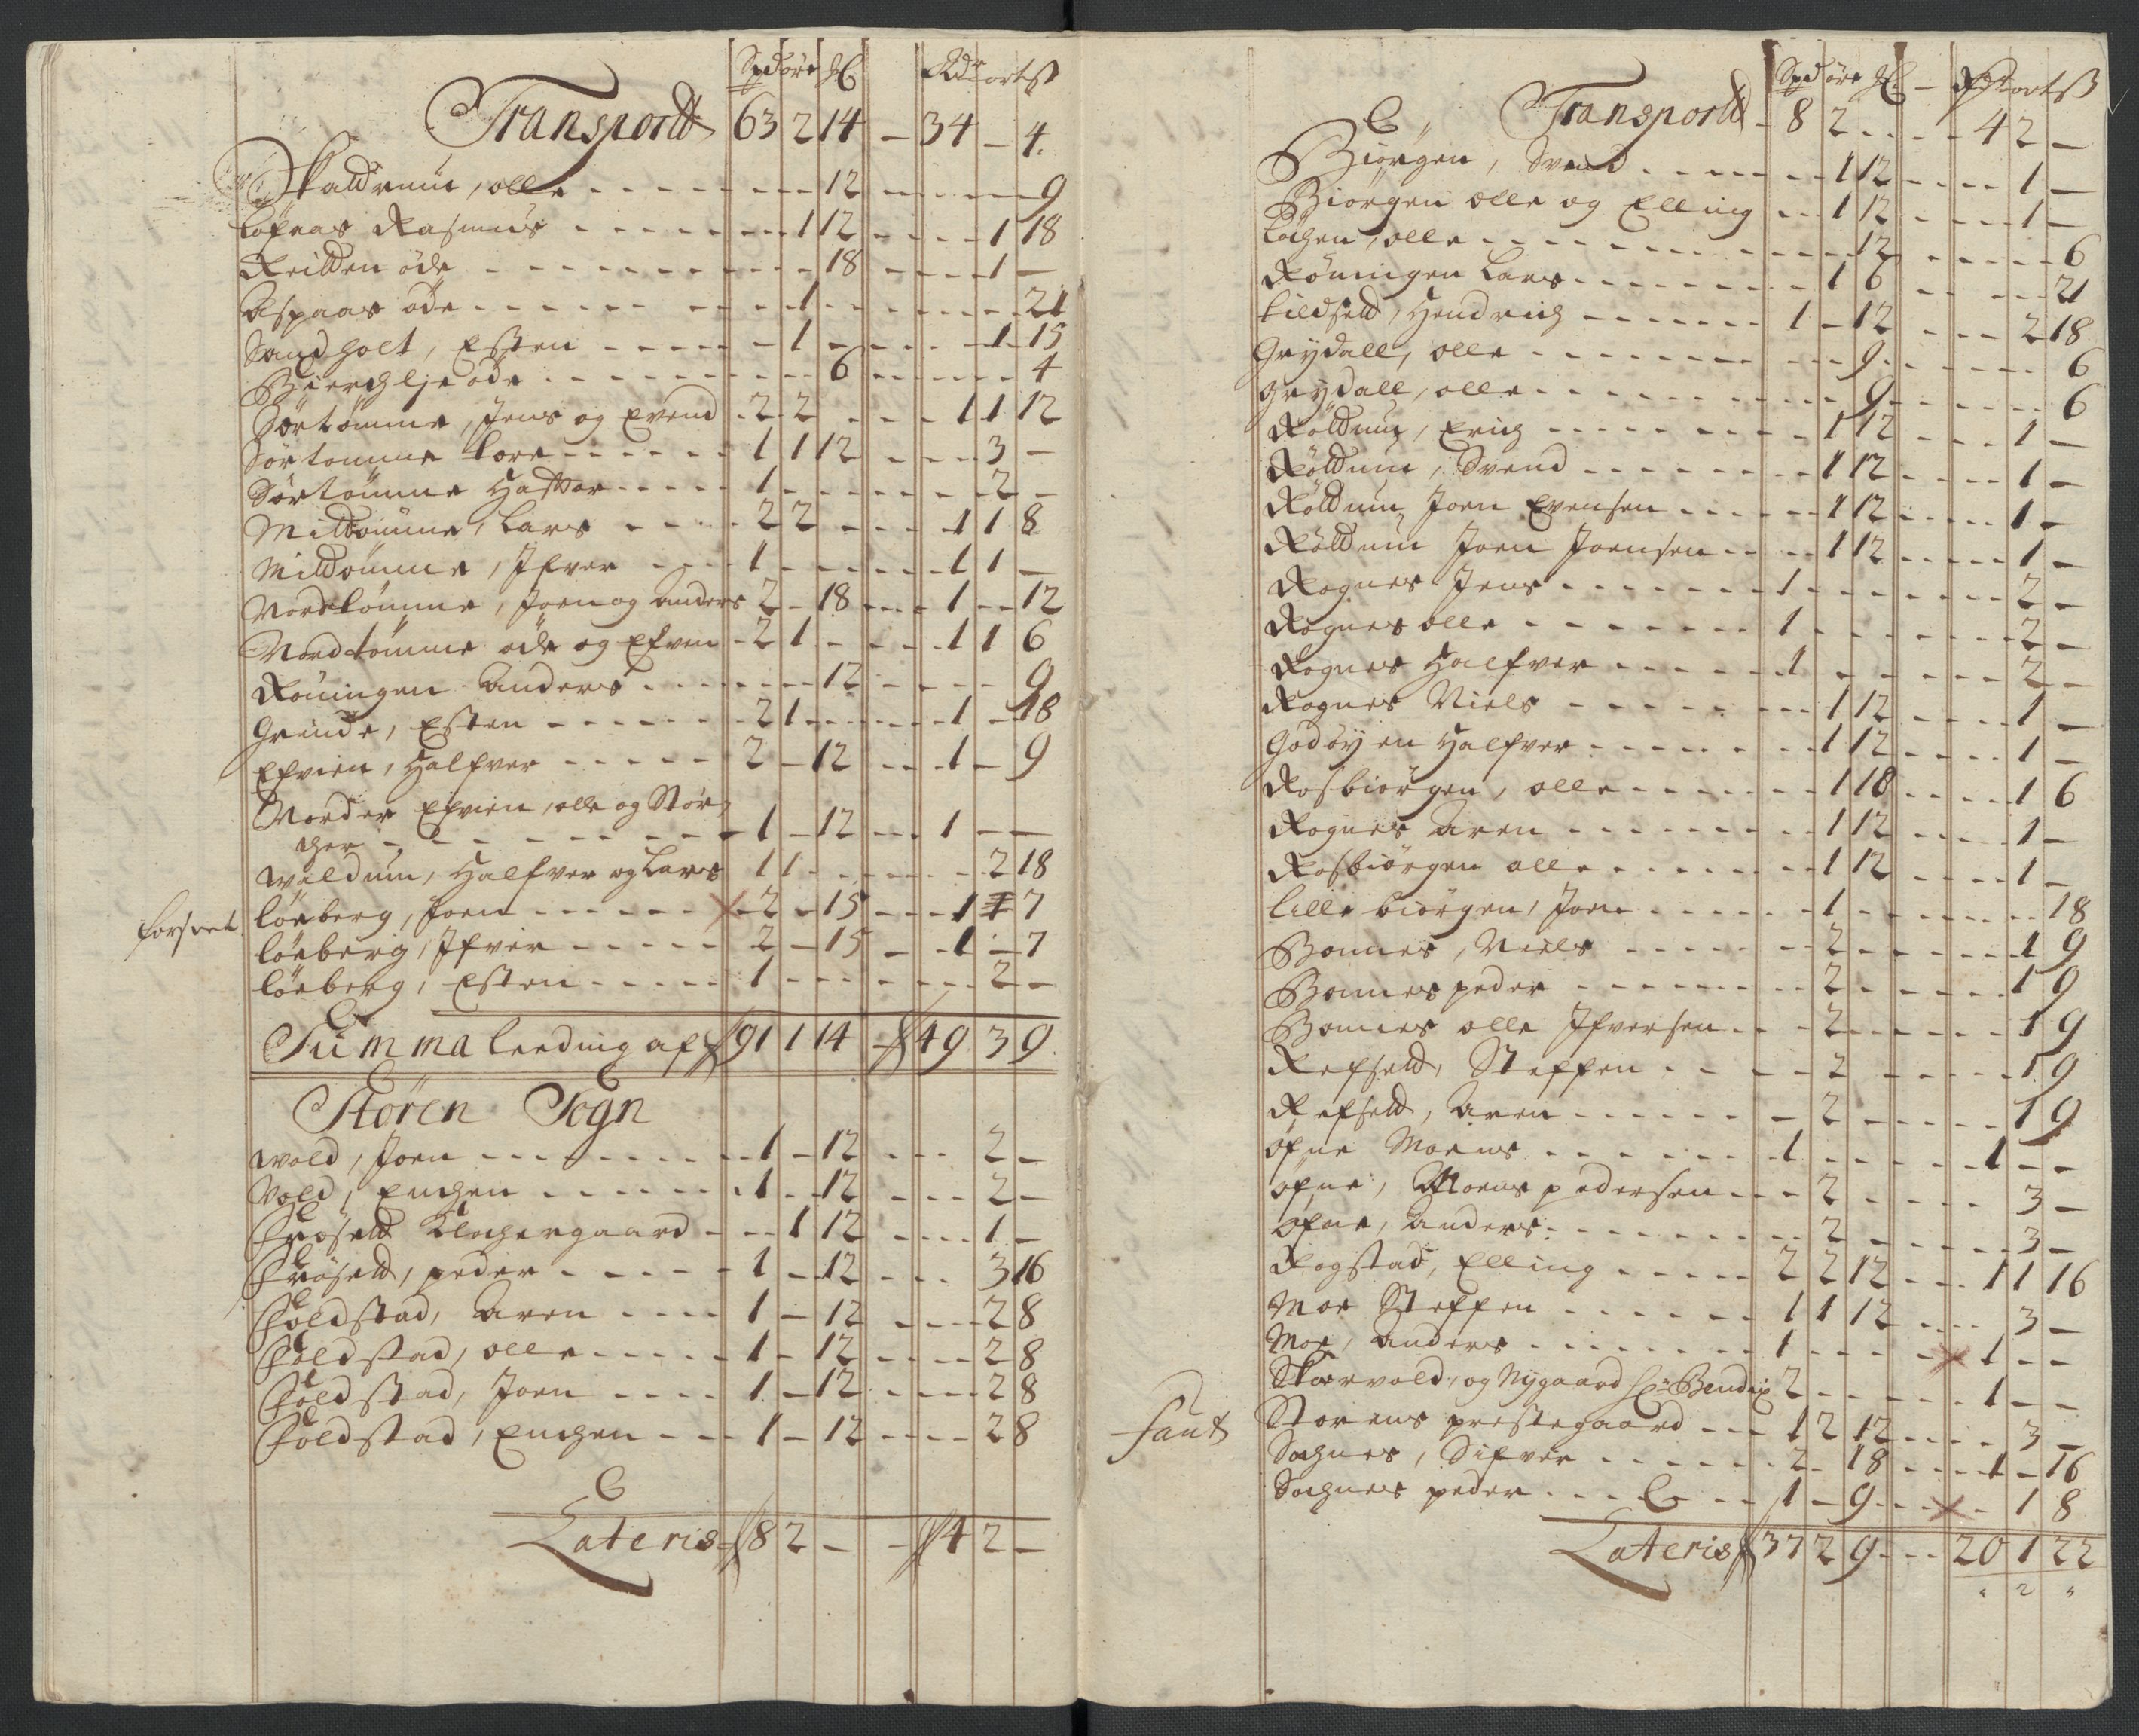 Spd øre ℔ Rdr ort ß
Transportt 63 2 14 - 34 - 4.
Skaldrum, olle - - - 12 - - - 9
Løfaas Rasmus - - - 1 12 - - - 1 18
Reitten øde - - - 18 - - - 1 -
Aspaas øde - - - 1 - - - 21
Sandholt, Esten - - - 1 - - - 1 15
Bierchlje øde - - - 6 - - - 4
Sørtømme, Jens og Evend - 2 2 - - - 1 1 12
Sørtomme tore - - - 1 1 12 - - - 3 -
Sørtømme Halvor - - - 1 - - - 2 -
Mittømme, Lars - - - 2 2 - - - 1 1 8
Mittømme, Ifver - - - 1 - - - 1 1 -
Nordtømme, Joen og Anders 2 - 18 - - - 1 - - 12
Nordtømme øde og Efven - 2 1 - - - 1 1 6
Røningen Anders - - - 12 - - - 9
Grinde, Esten - - - 2 1 - - - 1 - 18
Efvien, Halfver - - - 2 - 12 - - - 1 - 9
Norder Efvien, olle og Stør,
cher - - - 1 - 12 - - - 1 - -
Waldum, Halfver og Lars 1 1 - - - 2 18
forsvet. løeberg, Joen - - - × 2 - 15 - - - 1 1 7
løeberg, Ifver - - - 2 - 15 - - 1 - 7
løeberg, Esten - - - 1 - - - 2 -
Summa Leeding af 91 1 14 - 49 3 9.
Støren Sogn
wold, Joen - - - 1 - 12 - - - 2 -
Vold, Enchen - - - 1 - - 12 - - - 2 -
Frøsett Klochergaard - - - 1 12 - - - 1 -
Frøsett, peder - - - 1 - 12 - - - 3 16
Foldstad, Aren - - - 1 - 12 - - - 2 8
Foldstad, olle - - - 1 - 12 - - - 2 8
Foldstad, Joen - - - 1 - 12 - - - 2 8
Foldstad, Enchen - - - 1 - 12 - - - 2 8
Lateris 8 2 - - 4 2 -
Spd øre ℔ - Rdr ort ß
Transportt - 8 2 - - - 4 2 -
Biørgen, Svend - - - 1 12 - - - 1 -
Biørgen olle og Elling - - 1 12 - - - 1 -
Løchen, olle - - - 12 - - - 6
Røningen Lars - - - 1 6 - - - 21
Kildsett, Hendrich - - - 1 - 12 - - - 2 18
Grydall, olle - - - 9 - - - 6
Grydall, olle - - - 9 - - - 6
Røldum, Erich - - - 1 12 - - - 1 -
Røldum, Svend - - - 1 12 - - - 1 -
Røldum Joen Evensen - - - 1 12 - - - 1 -
Røldum Joen Joensen - - - 1 12 - - - 1 -
Rognes Jens - - - 1 - - - 2 -
Rognes olle - - - 1 - - - 2 -
Rognes Halfver - - - 1 - - - 2 -
Rognes Niels - - - 1 12 - - - 1 -
Godøyen Halfver - - - 1 12 - - - 1 -
Rosbiørgen, olle - - - 1 18 - - - 1 6
Rognes Aren - - - 1 12 - - - 1 -
Rosbiørgen olle - - - 1 12 - - - 1 -
Lille biørgen, Joen - - - 1 - - - 18
Bonnes, Niels - - - 2 - - - 1 9
Bonnes peder - - - 2 - - - 1 9
Bonnes olle Ifversen - - - 2 - - - 1 9
Refsett, Steffen - - - 2 - - - 1 9
Refsett, Aren - - - 2 - - - 1 9
Øfne Moens - - - 1 - - - 1 - -
Øfne, Moens pedersen - - - 2 - - - 3 -
Øfne, Anders - - - 2 - - - 3 -
Rogstad, Elling - - - 2 2 12 - - - 1 1 16
Moe Steffen - - - 1 1 12 - - - 3 -
Moe, Anders - - - 1 - - - × 1 - -
Skarvold, og Nygaard Hr Bendix 2 - - - 1 - -
fant Størens prestegaard - - - 1 2 12 - - - 3 -
Sognes, Sifver - - - 2 - 18 - - - 1 - 16
Sognes peder - - - 1 - 9 - - × - 1 8
Lateris 37 2 9 - - - 20 1 22
" 2 "